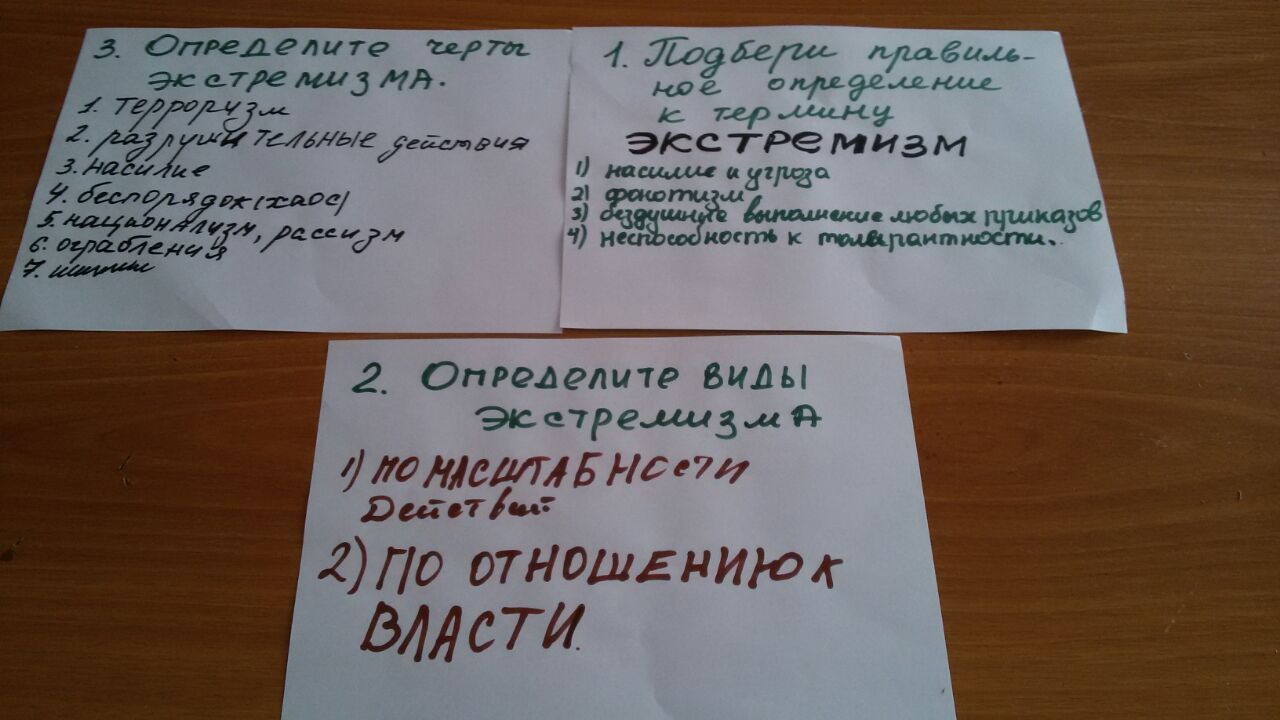 3. Определите черты
экстремизма.
1. терроруизм
2. разрушительные действия
3. насилие
4. беспорядок(хаос)
5. национализм, рассизм
6. ограбления
7.
1. Подбери правиль-
ное определение
к термину
ЭКСТРЕМИЗМ
1) насилие и угроза
2) фонотизм
3) бездушнуте выполнение любых приказов
4) неспособность к толерантности.
2. Определите виды
экстремизма
1) по масштабности
Действий
2) ПО ОТНОШЕНИЮ К
ВЛАСТИ.